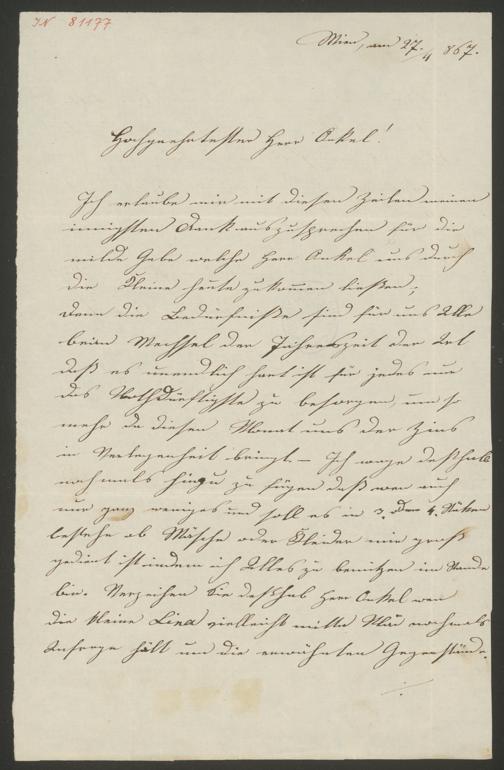 IN 81177
Wien, am 27./4 867.
Hochgeehrtester Herr Onkel!
Ich erlaube mir mit diesen Zeilen meinen
innigsten Dank auszusprechen für die
milde Gabe welche Herr Onkel uns durch
die Kleine heute zukommen ließen;
denn die Bedürfniße sind für uns Alle
beim Wechsel der Jahreszeit der Art
daß es unendlich hart ist für jedes nur
das Nothdürftigste zu besorgen, um so
mehr da diesen Monat uns der Zins
in Verlegenheit bringt – Ich wage deßhalb
nochmals hinzu zu fügen daß wen auch
nur ganz weniges und soll es in 3 oder 4 Stücken
bestehe ob Wäsche oder Kleider mir groß
gedient ist indem ich Alles zu benützen im Stande
bin. Verzeihen Sie deßhalb Herr Onkel wen
die kleine Lina vielleicht mitte Mai nochmals
Anfrage hält um die erwähnten Gegenstände.